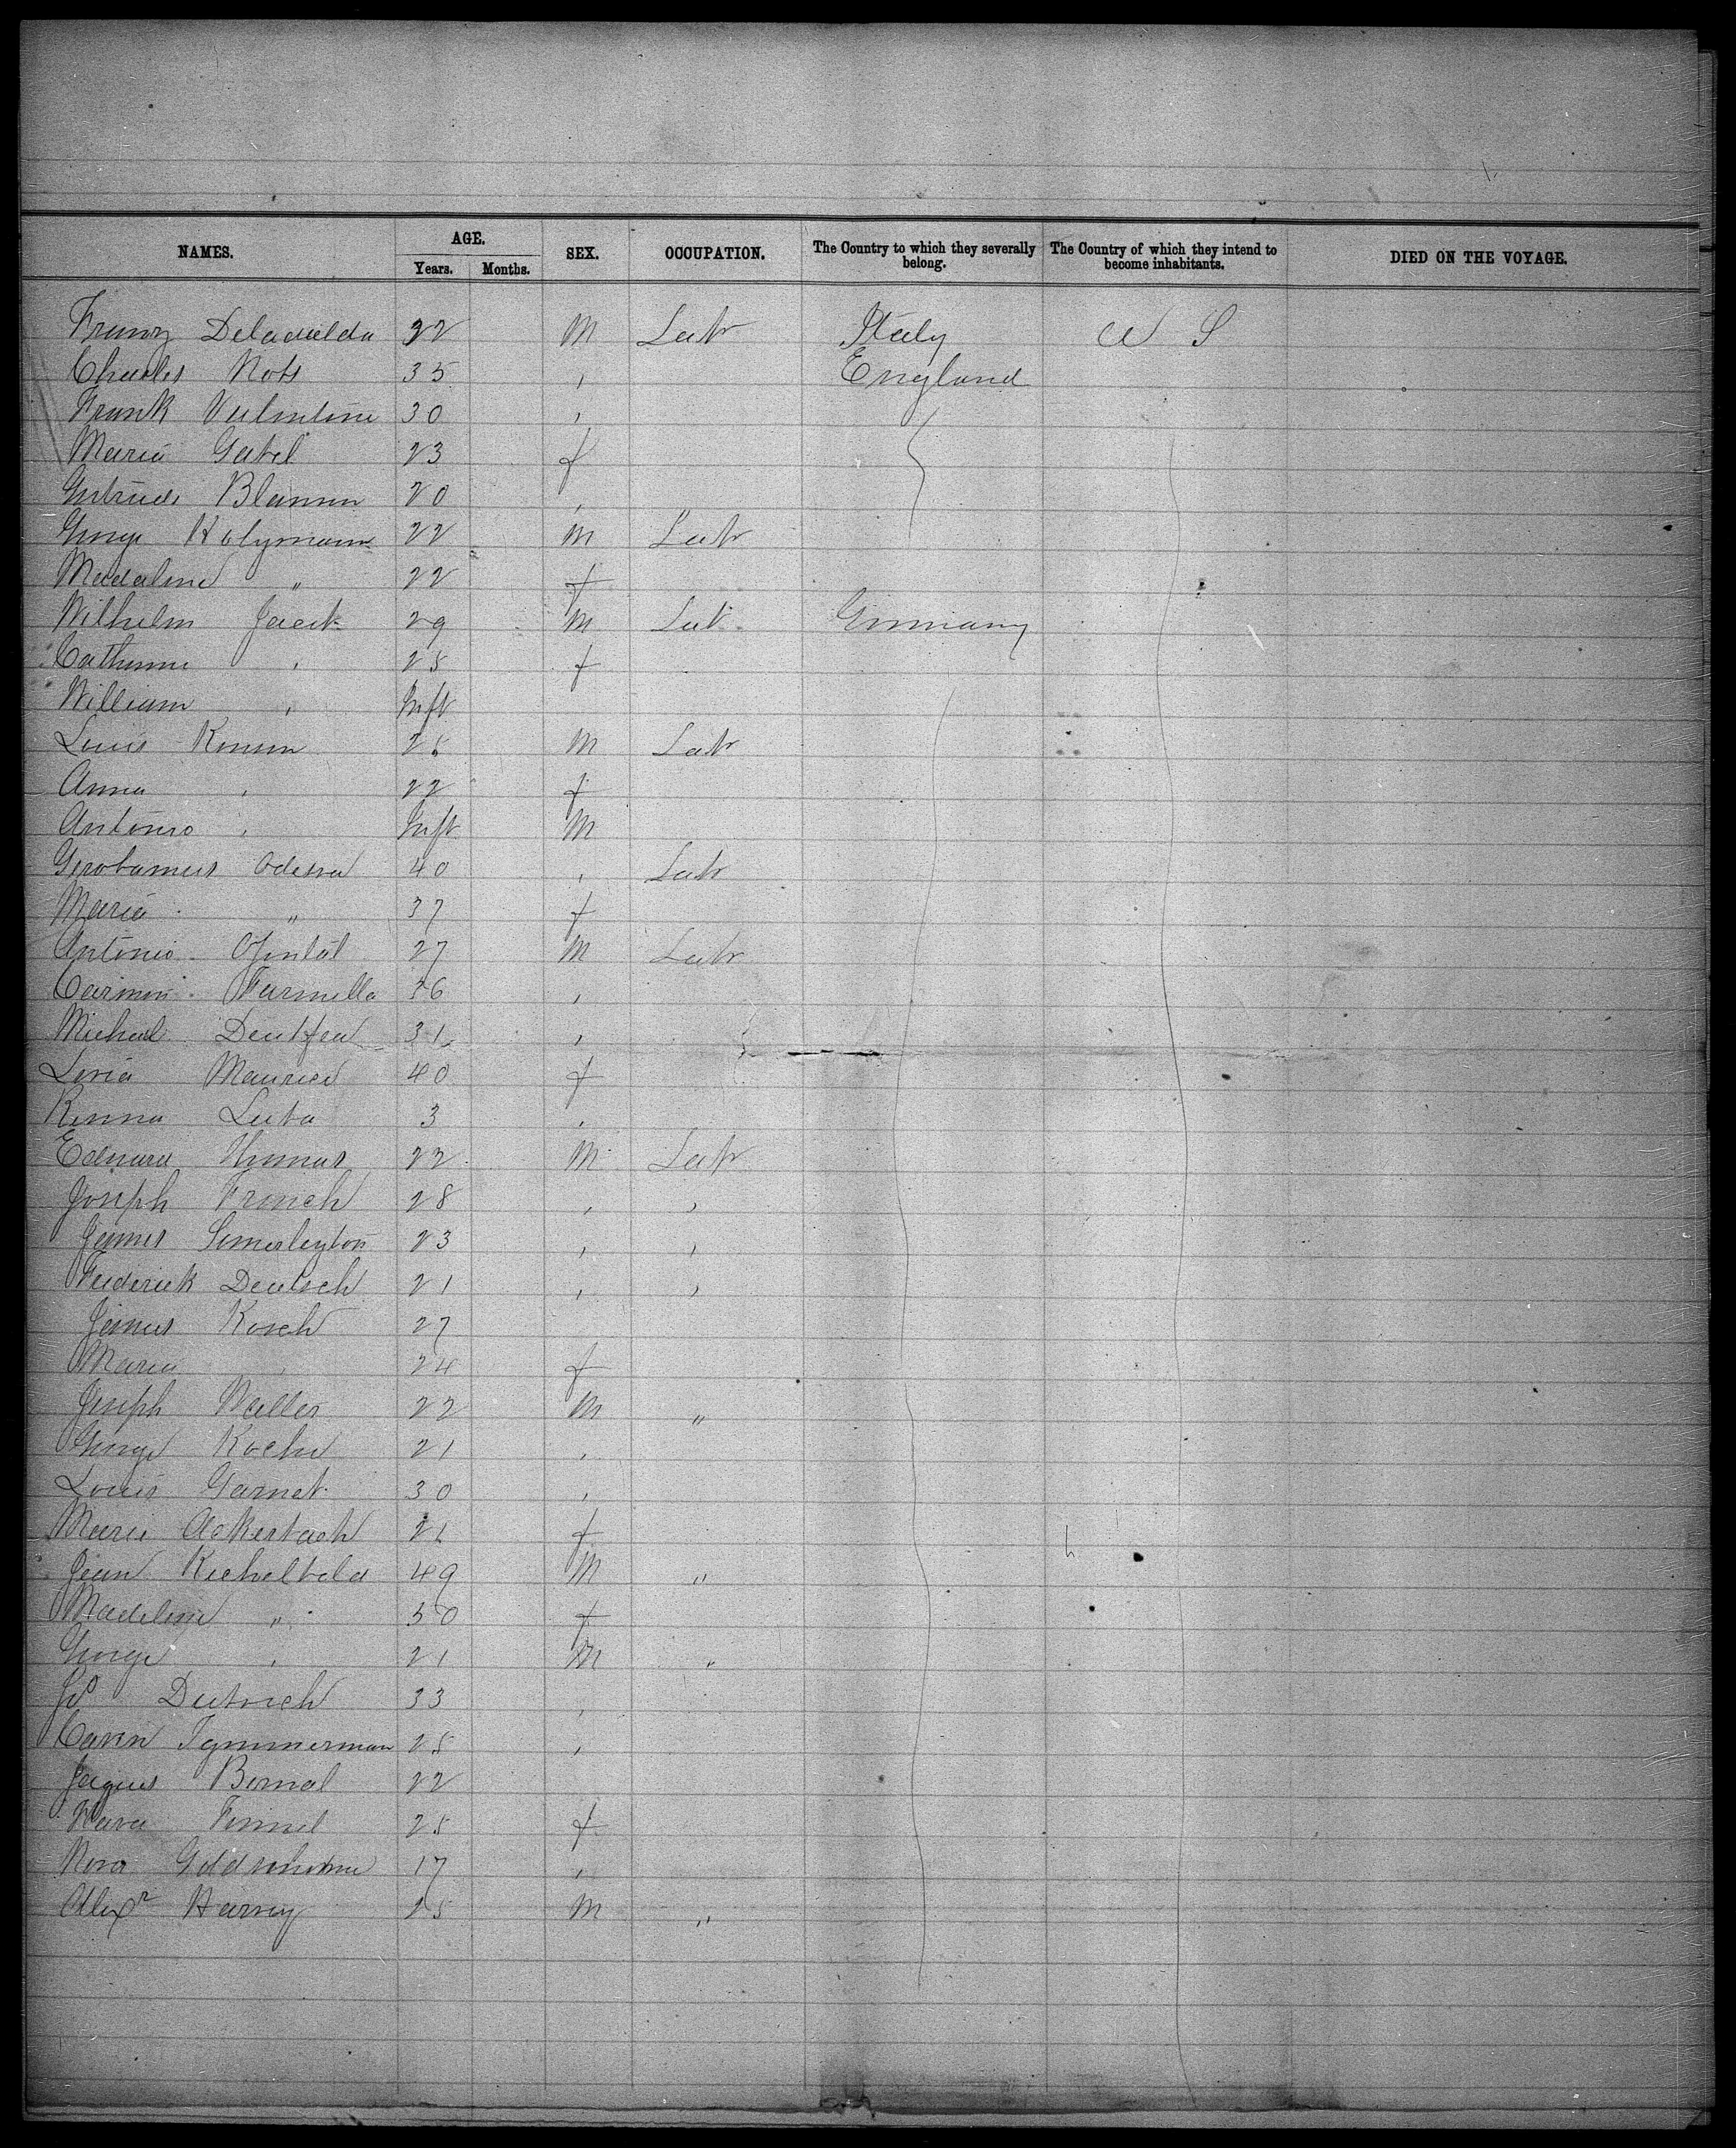 NAMES. AGE. SEX. OCCUPATION. The Country to which they severally belong. The Country of which they intend to become inhabitants. DIED ON THE VOYAGE.
Years. Months.
Franz 22 M Labr Italy U S
Charles Nots 35 , England
Frank Valentine 30 ,
Maria Gabel 23 f
Gertrude Blamm 20 ,
George Holymann 22 M Labr
Madaline " 22 f
Wilhelm Jaeck 29 M Lab Germany
Catherine , 25 f
William , Inft
Louis 25 M Labr
Anna , 22 f
Antonio , Inft M
Odessa 40 , Labr
Maria " 37 f
Antonio 27 M Labr
Carmin Farmella 36 ,
Michael 31 ,
Maurice 40 f
Luta 3 ,
Edward Thomas 22 M Labr
Joseph French 28 , ,
James Somerleyton 23 , ,
Frederick Deutsch 21 , ,
James Kosch 27
Maria , 24 f
Joseph Weller 22 M "
George Koche 21 ,
Louis Garnet 30 ,
Marie Ackerbach 21 f
Jean Kichelbold 49 M "
Madeline " 50 f
George , 21 M "
Jno Dietrich 33 ,
Tymmerman 25 ,
Jaques Bernal 22
Fimmel 25 f
17 ,
Alexr Harvey 25 M "